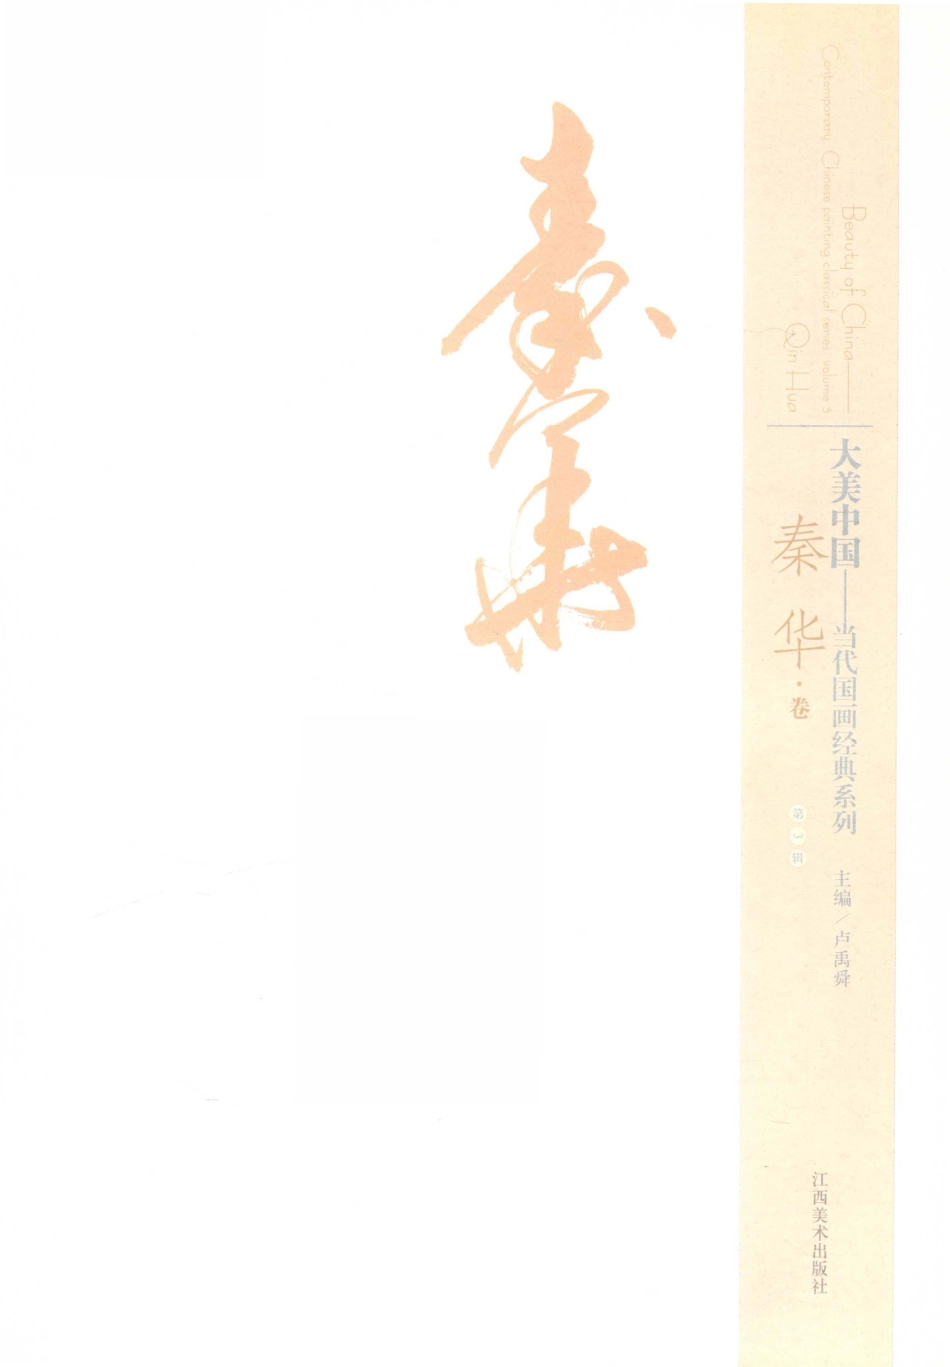 秦华
Beauty of China——
Contemporary Chinese painting classical series volume 3
Qin Hua
大美中国——当代国画经典系列
秦华·卷
第3辑
主编/卢禹舜
江西美术出版社